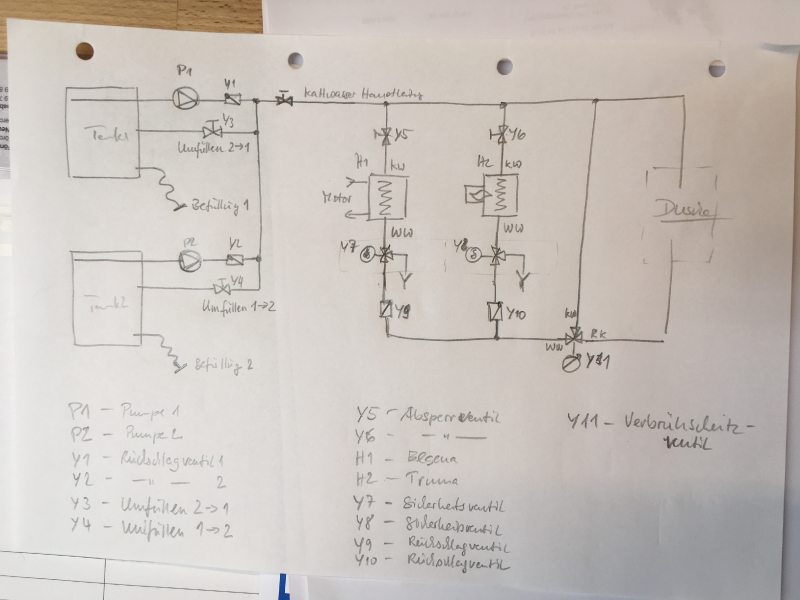 P1
Y1
Kaltwasser Hauptleitung
Tank1
Y3
Umfüllen 2→1
Y5
Y6
H1
KW
H2
KW
Motor
Befüllung 1
WW
WW
P2
Y2
Y7
Y8
Y4
Tank2
Umfüllen 1→2
Y9
Y10
KW
RK
WW
Befüllung 2
P1 - Pumpe 1
P2 - Pumpe 2
Y1 - Rückschlagventil 1
Y2 - -"- 2
Y3 - Umfüllen 2→1
Y4 - Umfüllen 1→2
Y5 - Absperrventil
Y6 - -"-
H1 - Elgena
H2 - Truma
Y7 - Sicherheitsventil
Y8 - Sicherheitsventil
Y9 - Rückschlagventil
Y10 - Rückschlagventil
Y11 - Verbrühschutz-
ventil